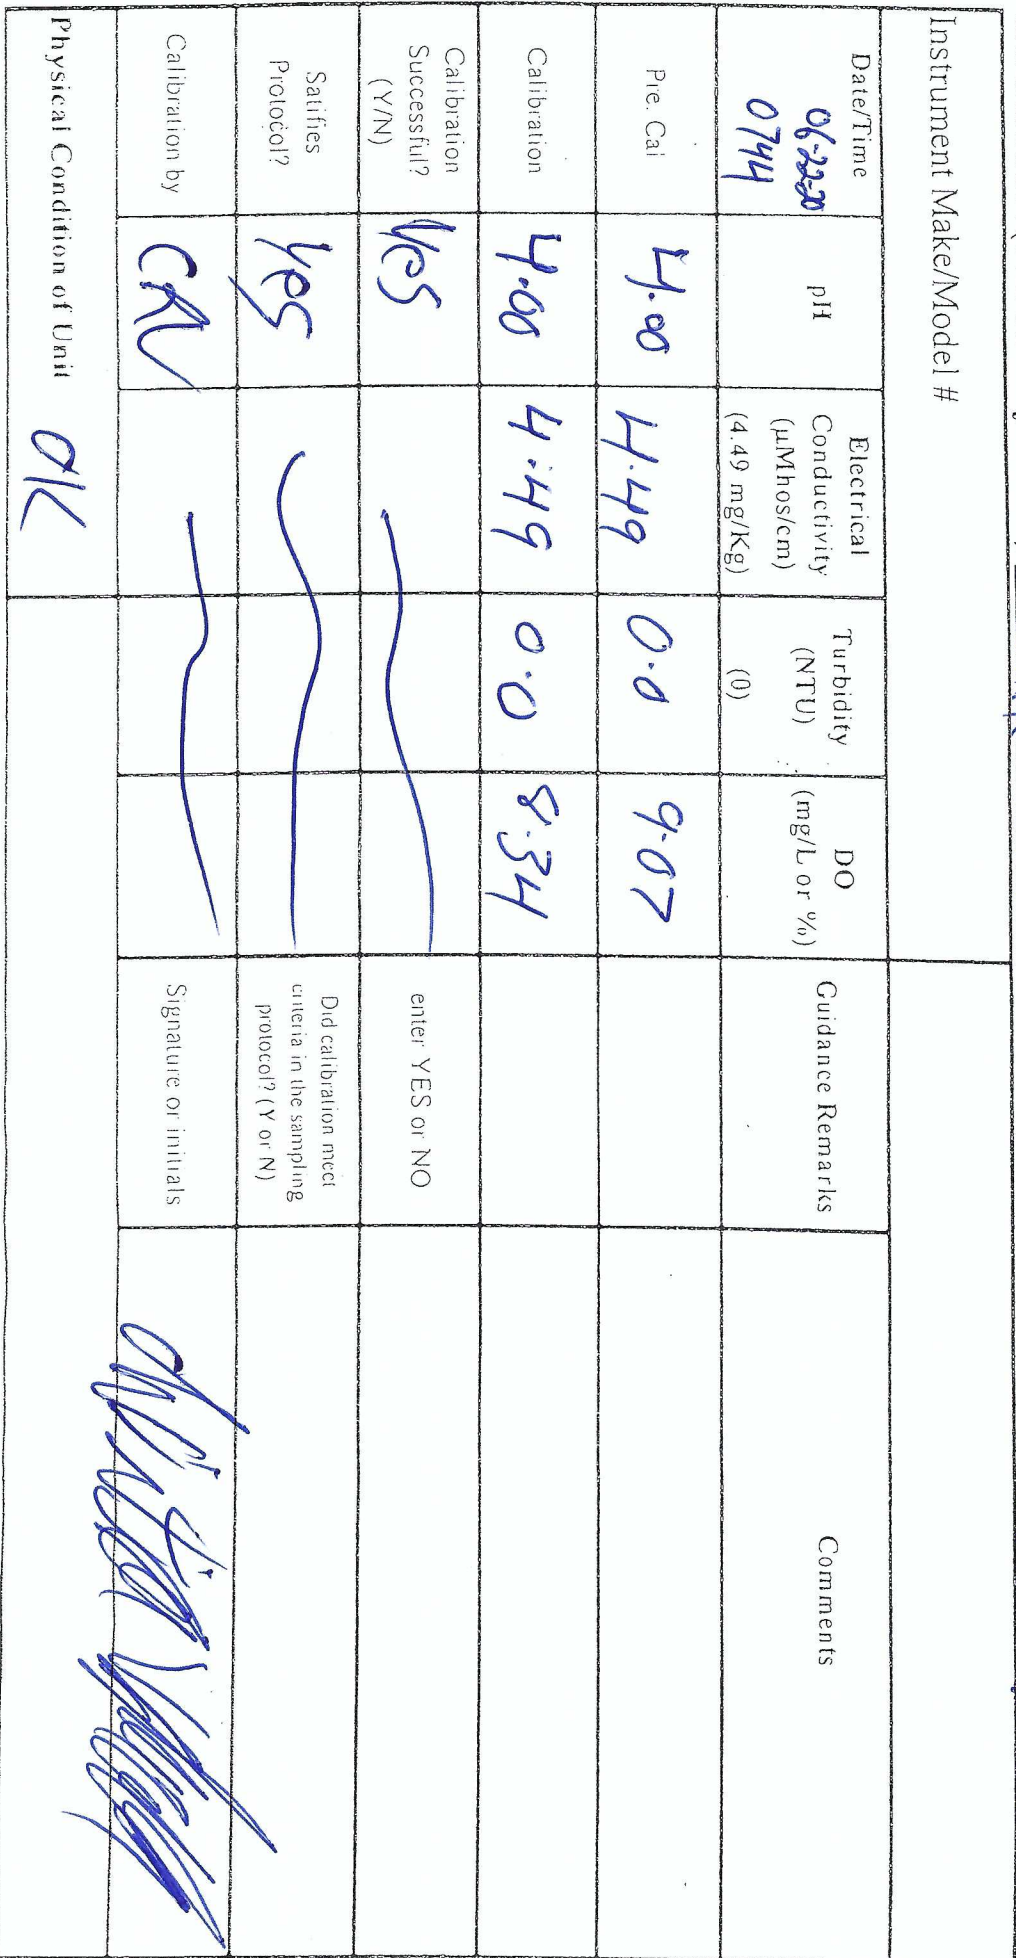 Instrument Make/Model #
Date/Time 06-22-20 0744
pH
Electrical Conductivity (µMhos/cm) (4.49 mg/Kg)
Turbidity (NTU) (0)
DO (mg/L or %)
Guidance Remarks
Comments
Pre. Cal 4.00 4.49 0.0 9.07
Calibration 4.00 4.49 0.0 8.34
Calibration Successful? (Y/N) Yes
enter YES or NO
Satifies Protocol? Yes
Did calibration meet criteria in the sampling protocol? (Y or N)
Calibration by
Signature or initials
Physical Condition of Unit OK